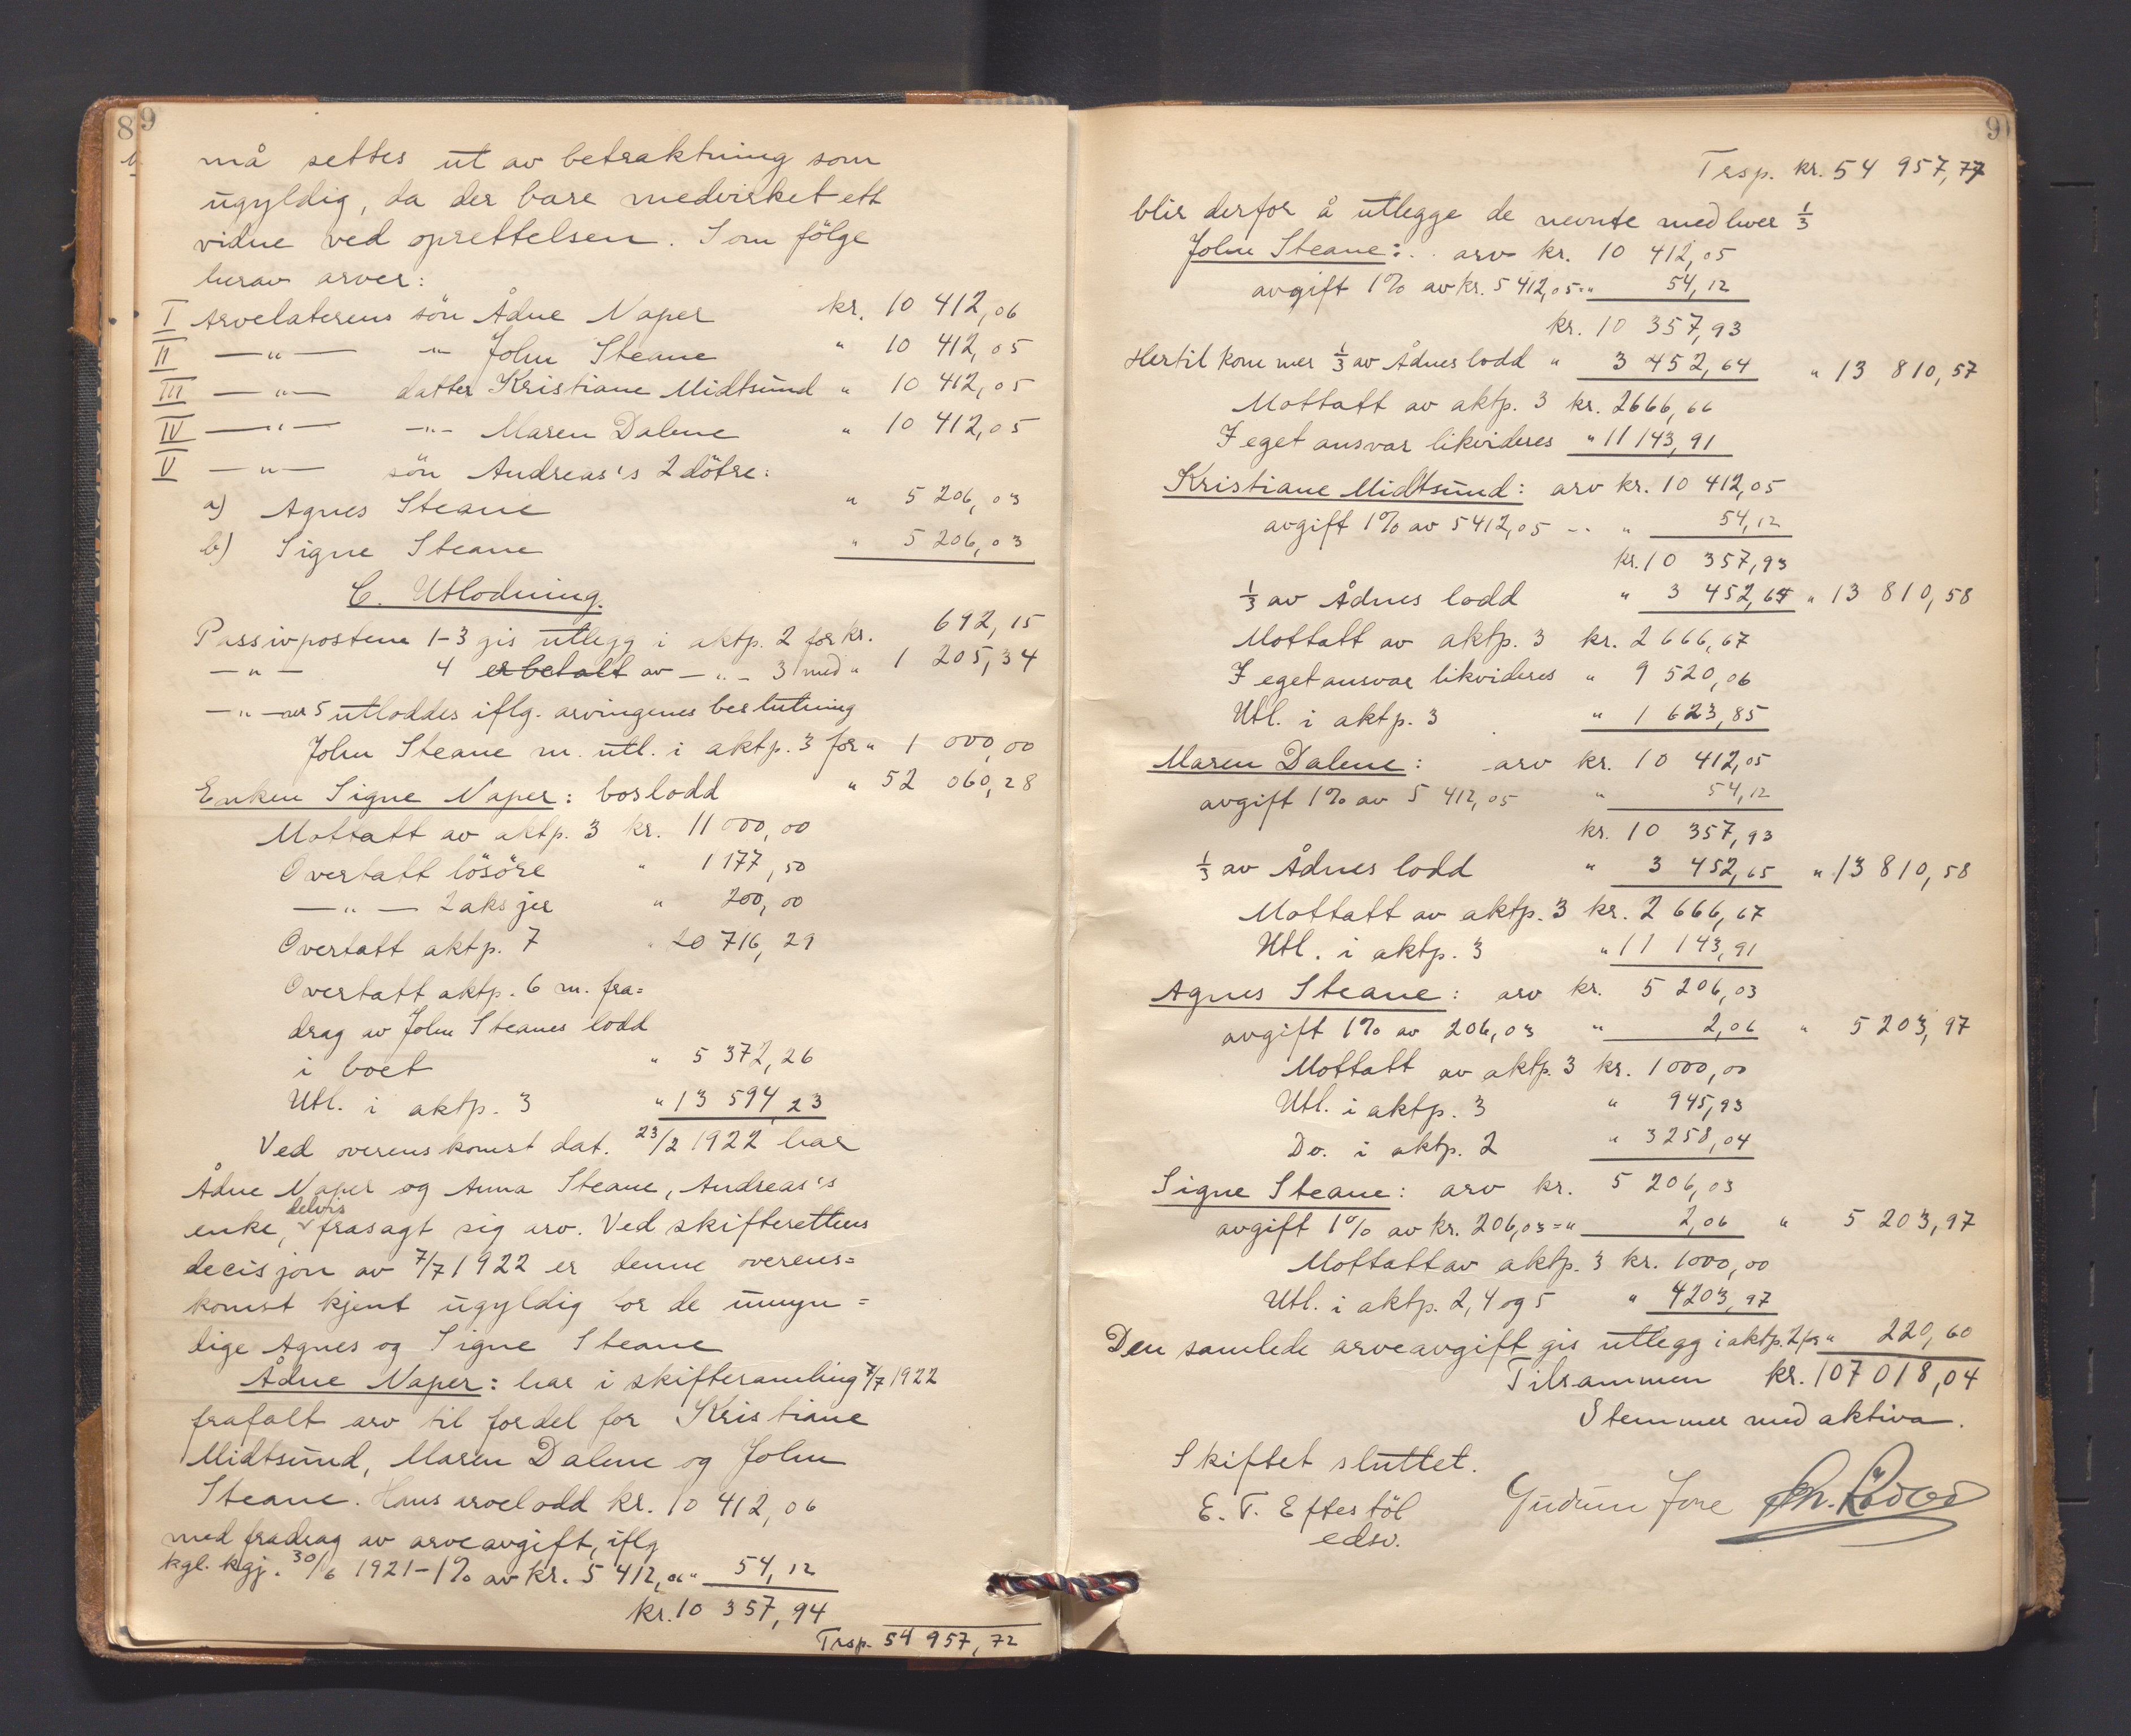 89
må settes ut av betraktning som
ugyldig, da der bare medvirket ett
vidne ved oprettelsen. Som følge
herav arver:
I Arvelaterens sön Ådne Naper kr. 10 412,06
II —"— —"— John Steane " 10 412,05
III —"— datter Kristiane Midtsund " 10 412,05
IV —"— —"— Maren Dalene " 10 412,05
V —"— sön Andreas's 2 dötre:
a) Agnes Steane " 5 206,03
b) Signe Steane " 5 206,03
C. Utlodning.
Passivpostene 1-3 gis utlegg i aktp. 2 for kr. 692,15
—"— 4 er betalt av —"— 3 med " 1 205,34
—"— 5 utloddes iflg. arvingenes beslutning
John Steane m. utl. i aktp. 3 for " 1 000,00
Enken Signe Naper: boslodd " 52 060,28
Mottatt av aktp. 3 kr. 11 000,00
Overtatt lösöre " 1 177,50
—"— 2 aksjer " 200,00
Overtatt aktp. 7 " 20 716,29
Overtatt aktp. 6 m. fra=
drag av John Steanes lodd
i boet " 5 372,26
Utl. i aktp. 3 " 13 594,23
Ved overenskomst dat. 23/2 1922 har
Ådne Naper og Anna Steane, Andreas's
enke, delvis frasagt sig arv. Ved skifterettens
decisjon av 7/7 1922 er denne overens=
komst kjent ugyldig for de umyn=
dige Agnes og Signe Steane
Ådne Naper: har i skiftesamling 7/7 1922
frafalt arv til fordel for Kristiane
Midtsund, Maren Dalene og John
Steane. Hans arvelodd kr. 10 412,06
med fradrag av arveavgift, iflg
kgl. kgj. 30/6 1921 - 1% av kr. 5 412,06 " 54,12
kr. 10 357,94
Trsp. 54 957,72
9
Trsp. kr. 54 957,77
blir derfor å utlegge de nevnte med hver 1/3
John Steane: . . arv kr. 10 412,05
avgift 1% av kr. 5 412,05 = " 54,12
kr. 10 357,93
Hertil kommer 1/3 av Ådnes lodd " 3 452,64 " 13 810,57
Mottatt av aktp. 3 kr. 2666,66
I eget ansvar likvideres " 11 143,91
Kristiane Midtsund: arv kr. 10 412,05
avgift 1% av 5412,05 -- " 54,12
kr. 10 357,93
1/3 av Ådnes lodd " 3 452,65 " 13 810,58
Mottatt av aktp. 3 kr. 2 666,67
I eget ansvar likvideres " 9 520,06
Utl. i aktp. 3 " 1 623,85
Maren Dalene: arv kr. 10 412,05
avgift 1% av 5 412,05 " 54,12
kr. 10 357,93
1/3 av Ådnes lodd " 3 452,65 " 13 810,58
Mottatt av aktp. 3 kr. 2 666,67
Utl. i aktp. 3 " 11 143,91
Agnes Steane: arv kr. 5 206,03
avgift 1% av 206,03 " 2,06 " 5 203,97
Mottatt av aktp. 3 kr. 1 000,00
Utl. i aktp. 3 " 945,93
Do. i aktp. 2 " 3258,04
Signe Steane: arv kr. 5 206,03
avgift 1% av kr. 206,03 = " 2,06 " 5 203,97
Mottatt av aktp. 3 kr. 1000,00
Utl. i aktp. 2, 4 og 5 " 4203,97
Den samlede arveavgift gis utlegg i aktp. 2 for " 220,60
Tilsammen kr. 107 018,04
Stemmer med aktiva.
Skiftet sluttet.
E. T. Eftestöl Gudrun Jore
edsv.